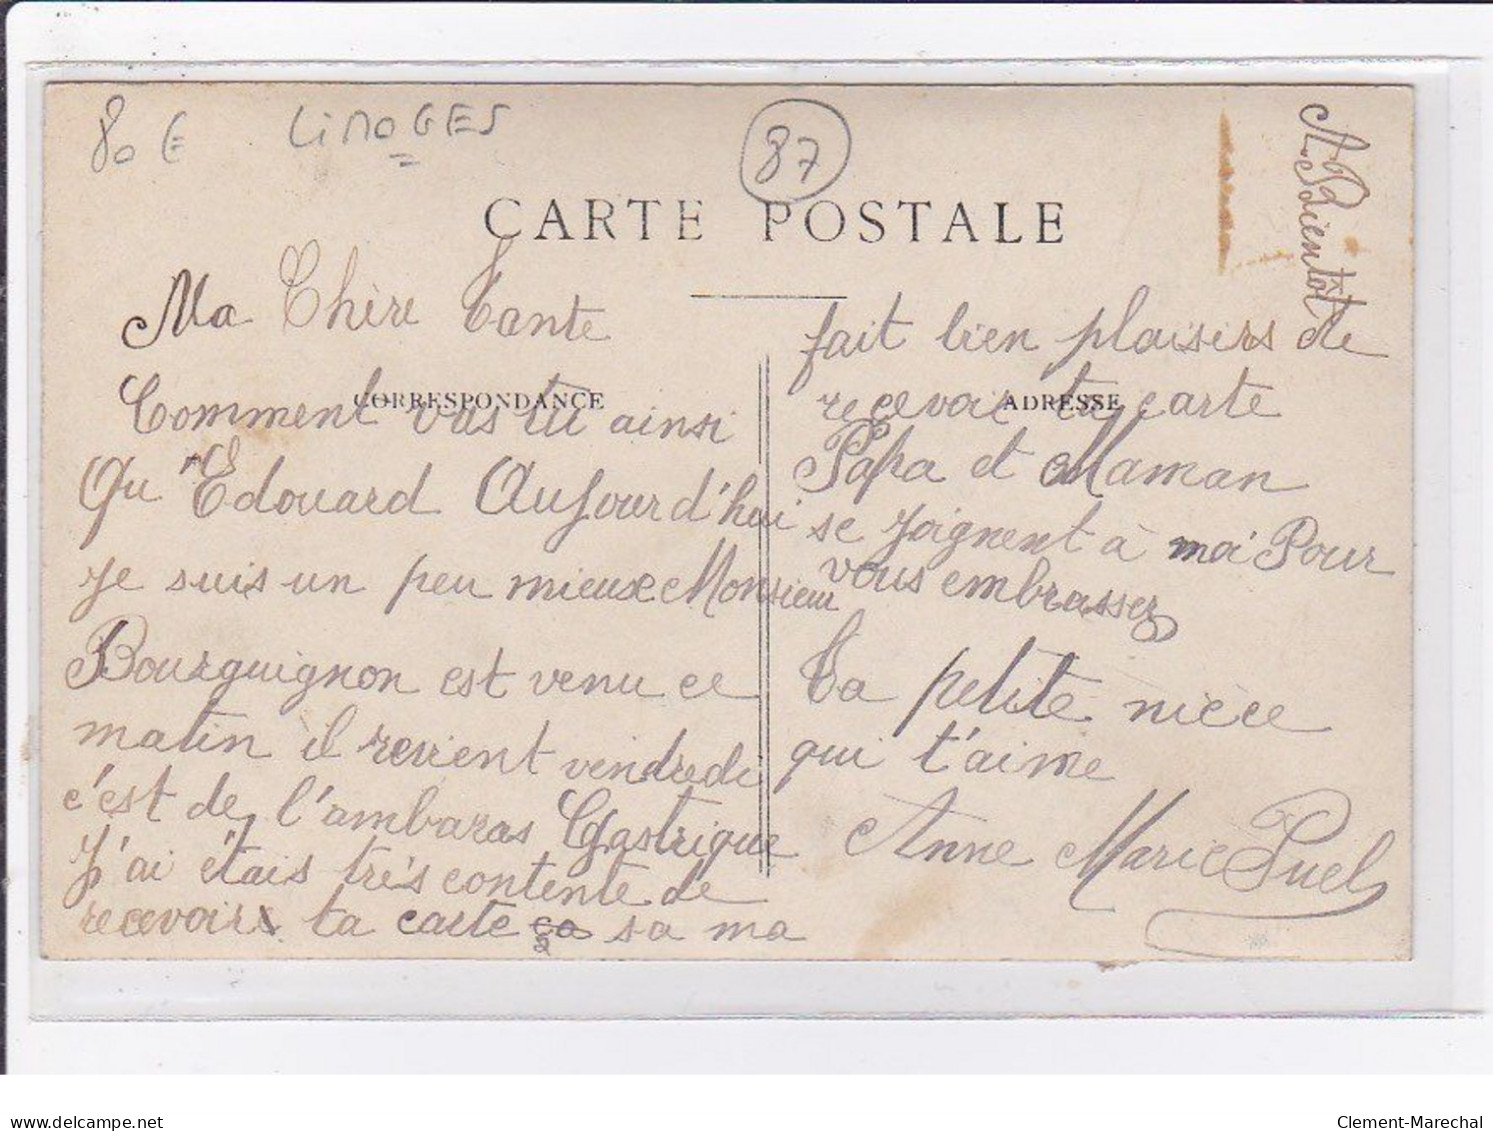 80 € LimOGES 87
A. Bientôt
CARTE POSTALE
Ma Chère Tante
CORRESPONDANCE
Comment vas tu ainsi
Qu'Edouard Aujourd'hui
je suis un peu mieux Monsieur
Bourguignon est venu ce
matin il revient vendredi
c'est de l'ambaras Gastrique
J'ai étais très contente de
recevoir ta carte sa ma
fait bien plaisirs de
ADRESSE
recevoir ta carte
Papa et Maman
se joignent à moi Pour
vous embrasser
Ta petite niece
qui t'aime
Anne Marie Puel
delcampe.net
Clement-Marechal